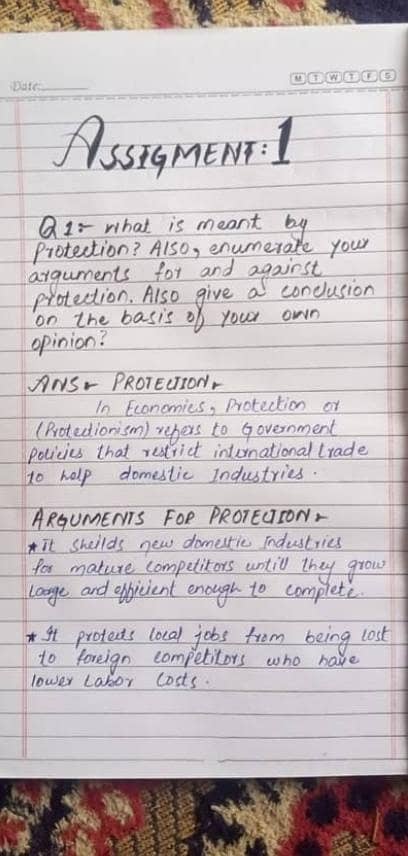 Date:
M T W T F S
ASSIGMENT: 1
Q1:- what is meant by
Protection? Also, enumerate your
arguments for and against
protection. Also give a conclusion
on the basis of your own
opinion?
ANS:- PROTECTION:-
In Economics, Protection or
(Protectionism) refers to Government
Policies that restrict international trade
to help domestic Industries.
ARGUMENTS FOR PROTECTION:-
* It Sheilds new domestic Industries
for mature competitors untill they grow
Large and efficient enough to complete.
* It protects local jobs from being lost
to foreign competitors who have
lower Labor Costs.